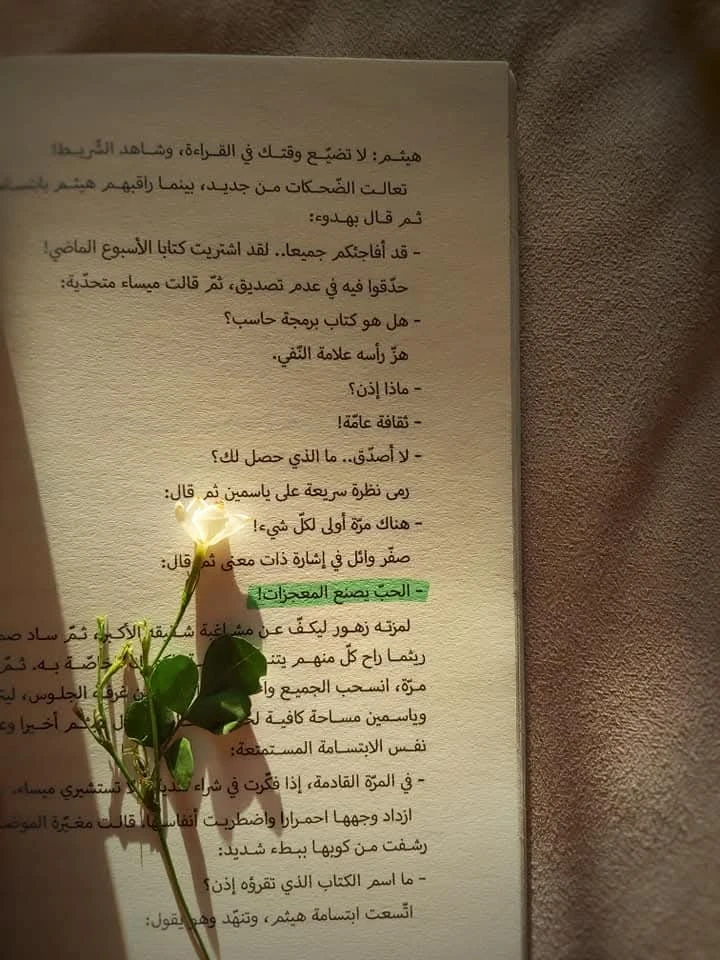 هيثـم: لا تضيّـع وقتـك في القـراءة، وشـاهد الشّريـط!
تعالـت الضّحـكات مـن جديـد، بينمـا راقبهـم هيثـم
ثـم قـال بهـدوء:
- قد أفاجئكم جميعا.. لقد اشتريت كتابا الأسبوع الماضي!
حدّقوا فيه في عدم تصديق، ثمّ قالت ميساء متحدّية:
- هل هو كتاب برمجة حاسب؟
هزّ رأسه علامة النّفي.
- ماذا إذن؟
- ثقافة عامّة!
- لا أصدّق.. ما الذي حصل لك؟
رمى نظرة سريعة على ياسمين ثم قال:
- هناك مرّة أولى لكلّ شيء!
صفّر وائل في إشارة ذات معنى ثم قال:
- الحبّ يصنع المعجزات!
لمزتـه زهـور ليكـفّ عـن مشـاغبة شـقيقه الأكبـر، ثـمّ سـاد
ريثمـا راح كلّ منهـم خاصّـة بـه. ثـمّ
مـرّة، انسـحب الجميـع غرفـة الجلـوس،
وياسـمين مساحة كافيـة هيثـم أخيـرا
نفـس الابتسـامة المسـتمتعة:
- في المرّة القادمة، إذا فكّرت في شراء لا تستشيري ميساء.
ازداد وجههـا احمـرارا واضطربـت أنفاسـها، قالـت مغيّـرة
رشـفت مـن كوبهـا ببـطء شـديد:
- ما اسم الكتاب الذي تقرؤه إذن؟
اتّسعت ابتسامة هيثم، وتنهّد وهو يقول: